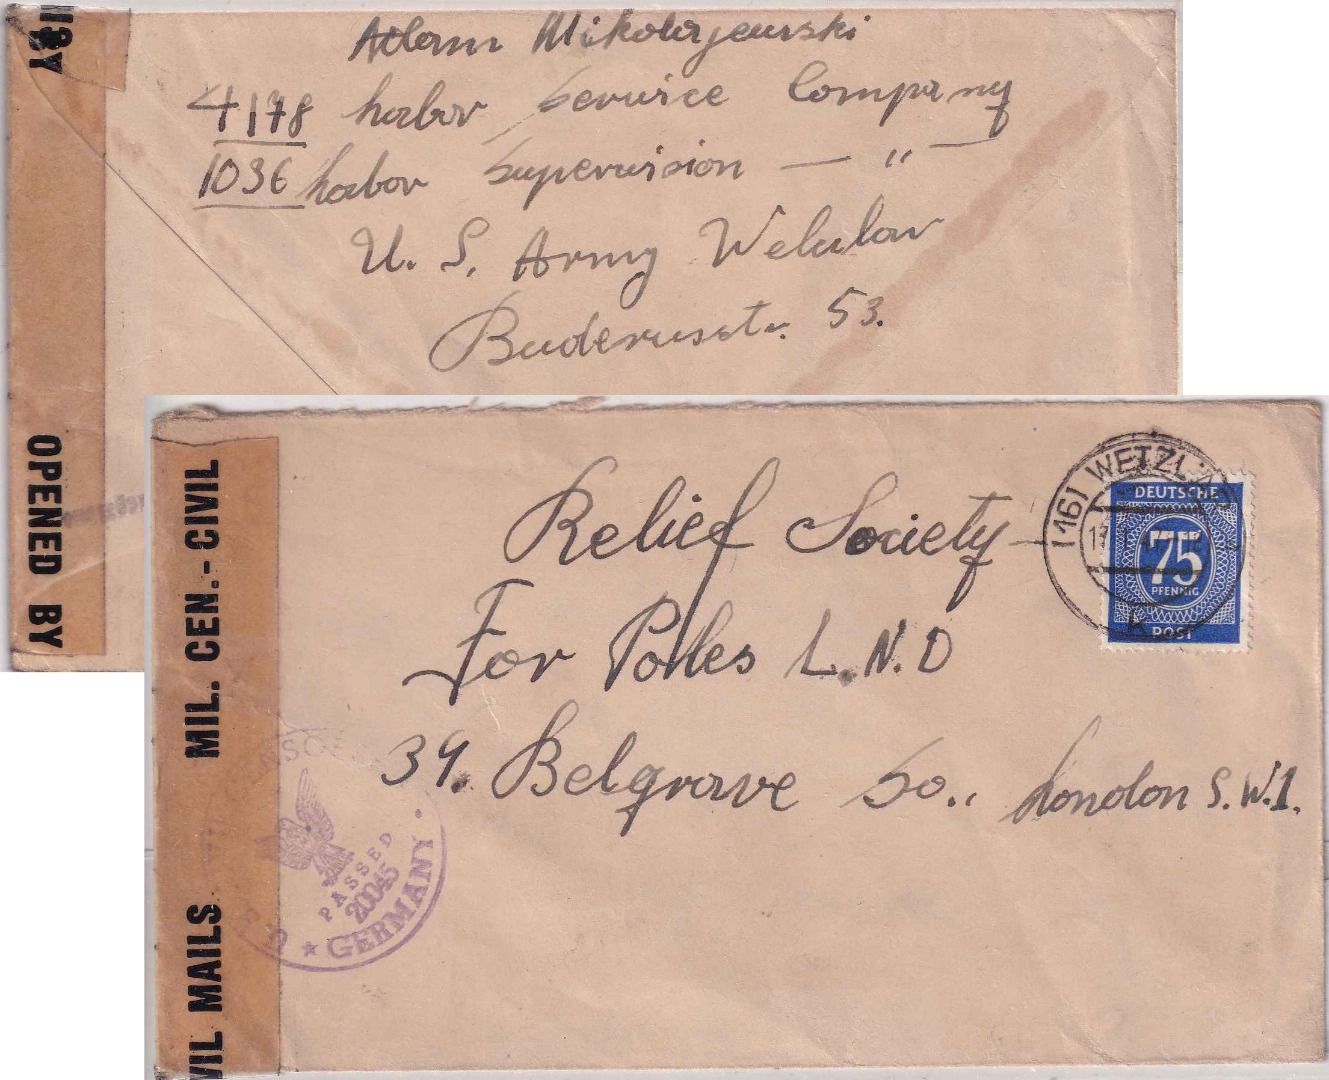 Adam Mikolajewski
4178 Labor Service Company
1036 Labor Supervision — " —
U. S. Army Wetzlar
Buderusstr. 53.
OPENED BY
MIL. CEN. - CIVIL MAILS
Relief Society
For Poles L.N.D
39. Belgrave So., London S.W.1.
(16) WETZLAR
K
DEUTSCHE
75
PFENNIG
POST
PASSED
20045
U.S. GERMANY